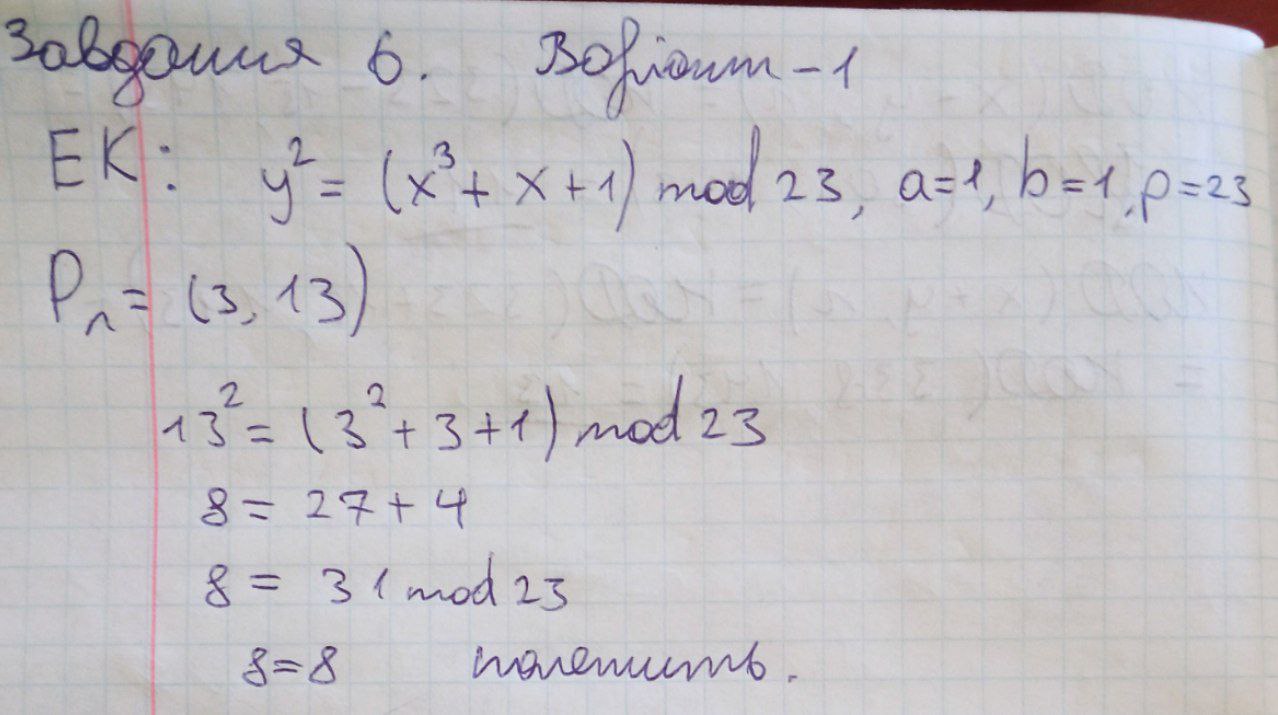 Завдання 6. Варіант - 1
ЕК: y² = (x³ + x + 1) mod 23, a=1, b=1, p=23
P₁ = (3, 13)
13² = (3² + 3 + 1) mod 23
8 = 27 + 4
8 = 31 mod 23
8 = 8 належить.